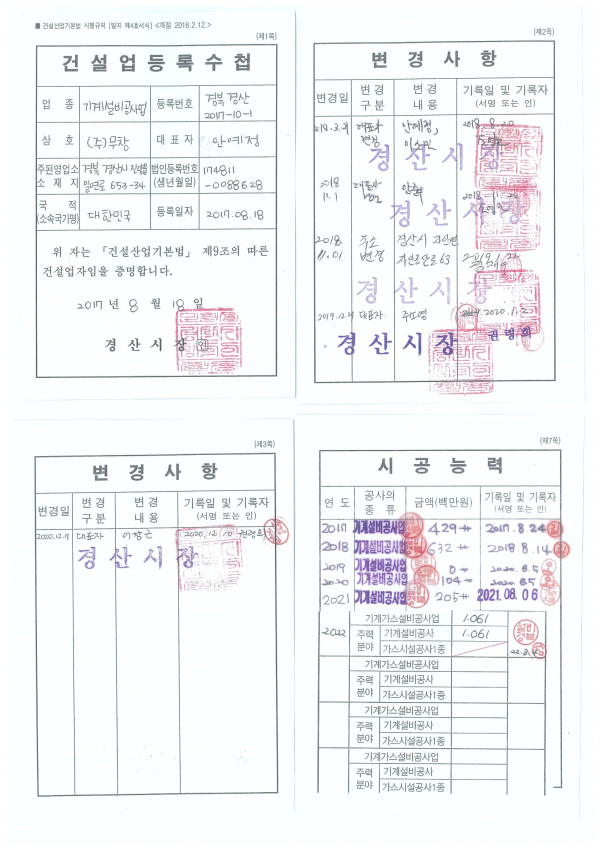 ■ 건설산업기본법 시행규칙 [별지 제4호서식] <개정 2016.2.12.>
(제1쪽)
건설업등록수첩
업 종 기계설비공사업 등록번호 경북 경산
2017-10-1
상 호 (주)무창 대 표 자 안예정
주된영업소 소 재 지 경북 경산시 진량읍 일연로 653-34 법인등록번호 (생년월일) 174811
-0088628
국 적 (소속국가명) 대한민국 등록일자 2017.08.18
위 자는 「건설산업기본법」 제9조의 따른
건설업자임을 증명합니다.
2017 년 8 월 18 일
경 산 시 장 인
(제2쪽)
변 경 사 항
변경일 변 경 구 분 변 경 내 용 기록일 및 기록자 (서명 또는 인)
대표자 변경 안예정, 2018.8.20
경 산 시 장
2018 11.1 대표자
경 산 시 장
2018 11.01. 주소 변경 경산시 자인면 63 2019.1.22
경 산 시 장
2019.12.21 대표자 2020.1.2
경 산 시 장 권영희
(제3쪽)
변 경 사 항
변경일 변 경 구 분 변 경 내 용 기록일 및 기록자 (서명 또는 인)
2020.12.7 대표자 2020.12.10
경 산 시 장
(제7쪽)
시 공 능 력
연 도 공사의 종 류 금액(백만원) 기록일 및 기록자 (서명 또는 인)
2017 기계설비공사업 429 2017.8.24
2018 기계설비공사업 632 2018.8.14
2019 기계설비공사업 0 2020.8.5
2020 기계설비공사업 104 2020.8.5
2021 기계설비공사업 205 2021.08.06
2022 기계가스설비공사업 1.061
주력 분야 기계설비공사 1.061
가스시설공사1종 22.8.
기계가스설비공사업
주력 분야 기계설비공사
가스시설공사1종
기계가스설비공사업
주력 분야 기계설비공사
가스시설공사1종
기계가스설비공사업
주력 분야 기계설비공사
가스시설공사1종